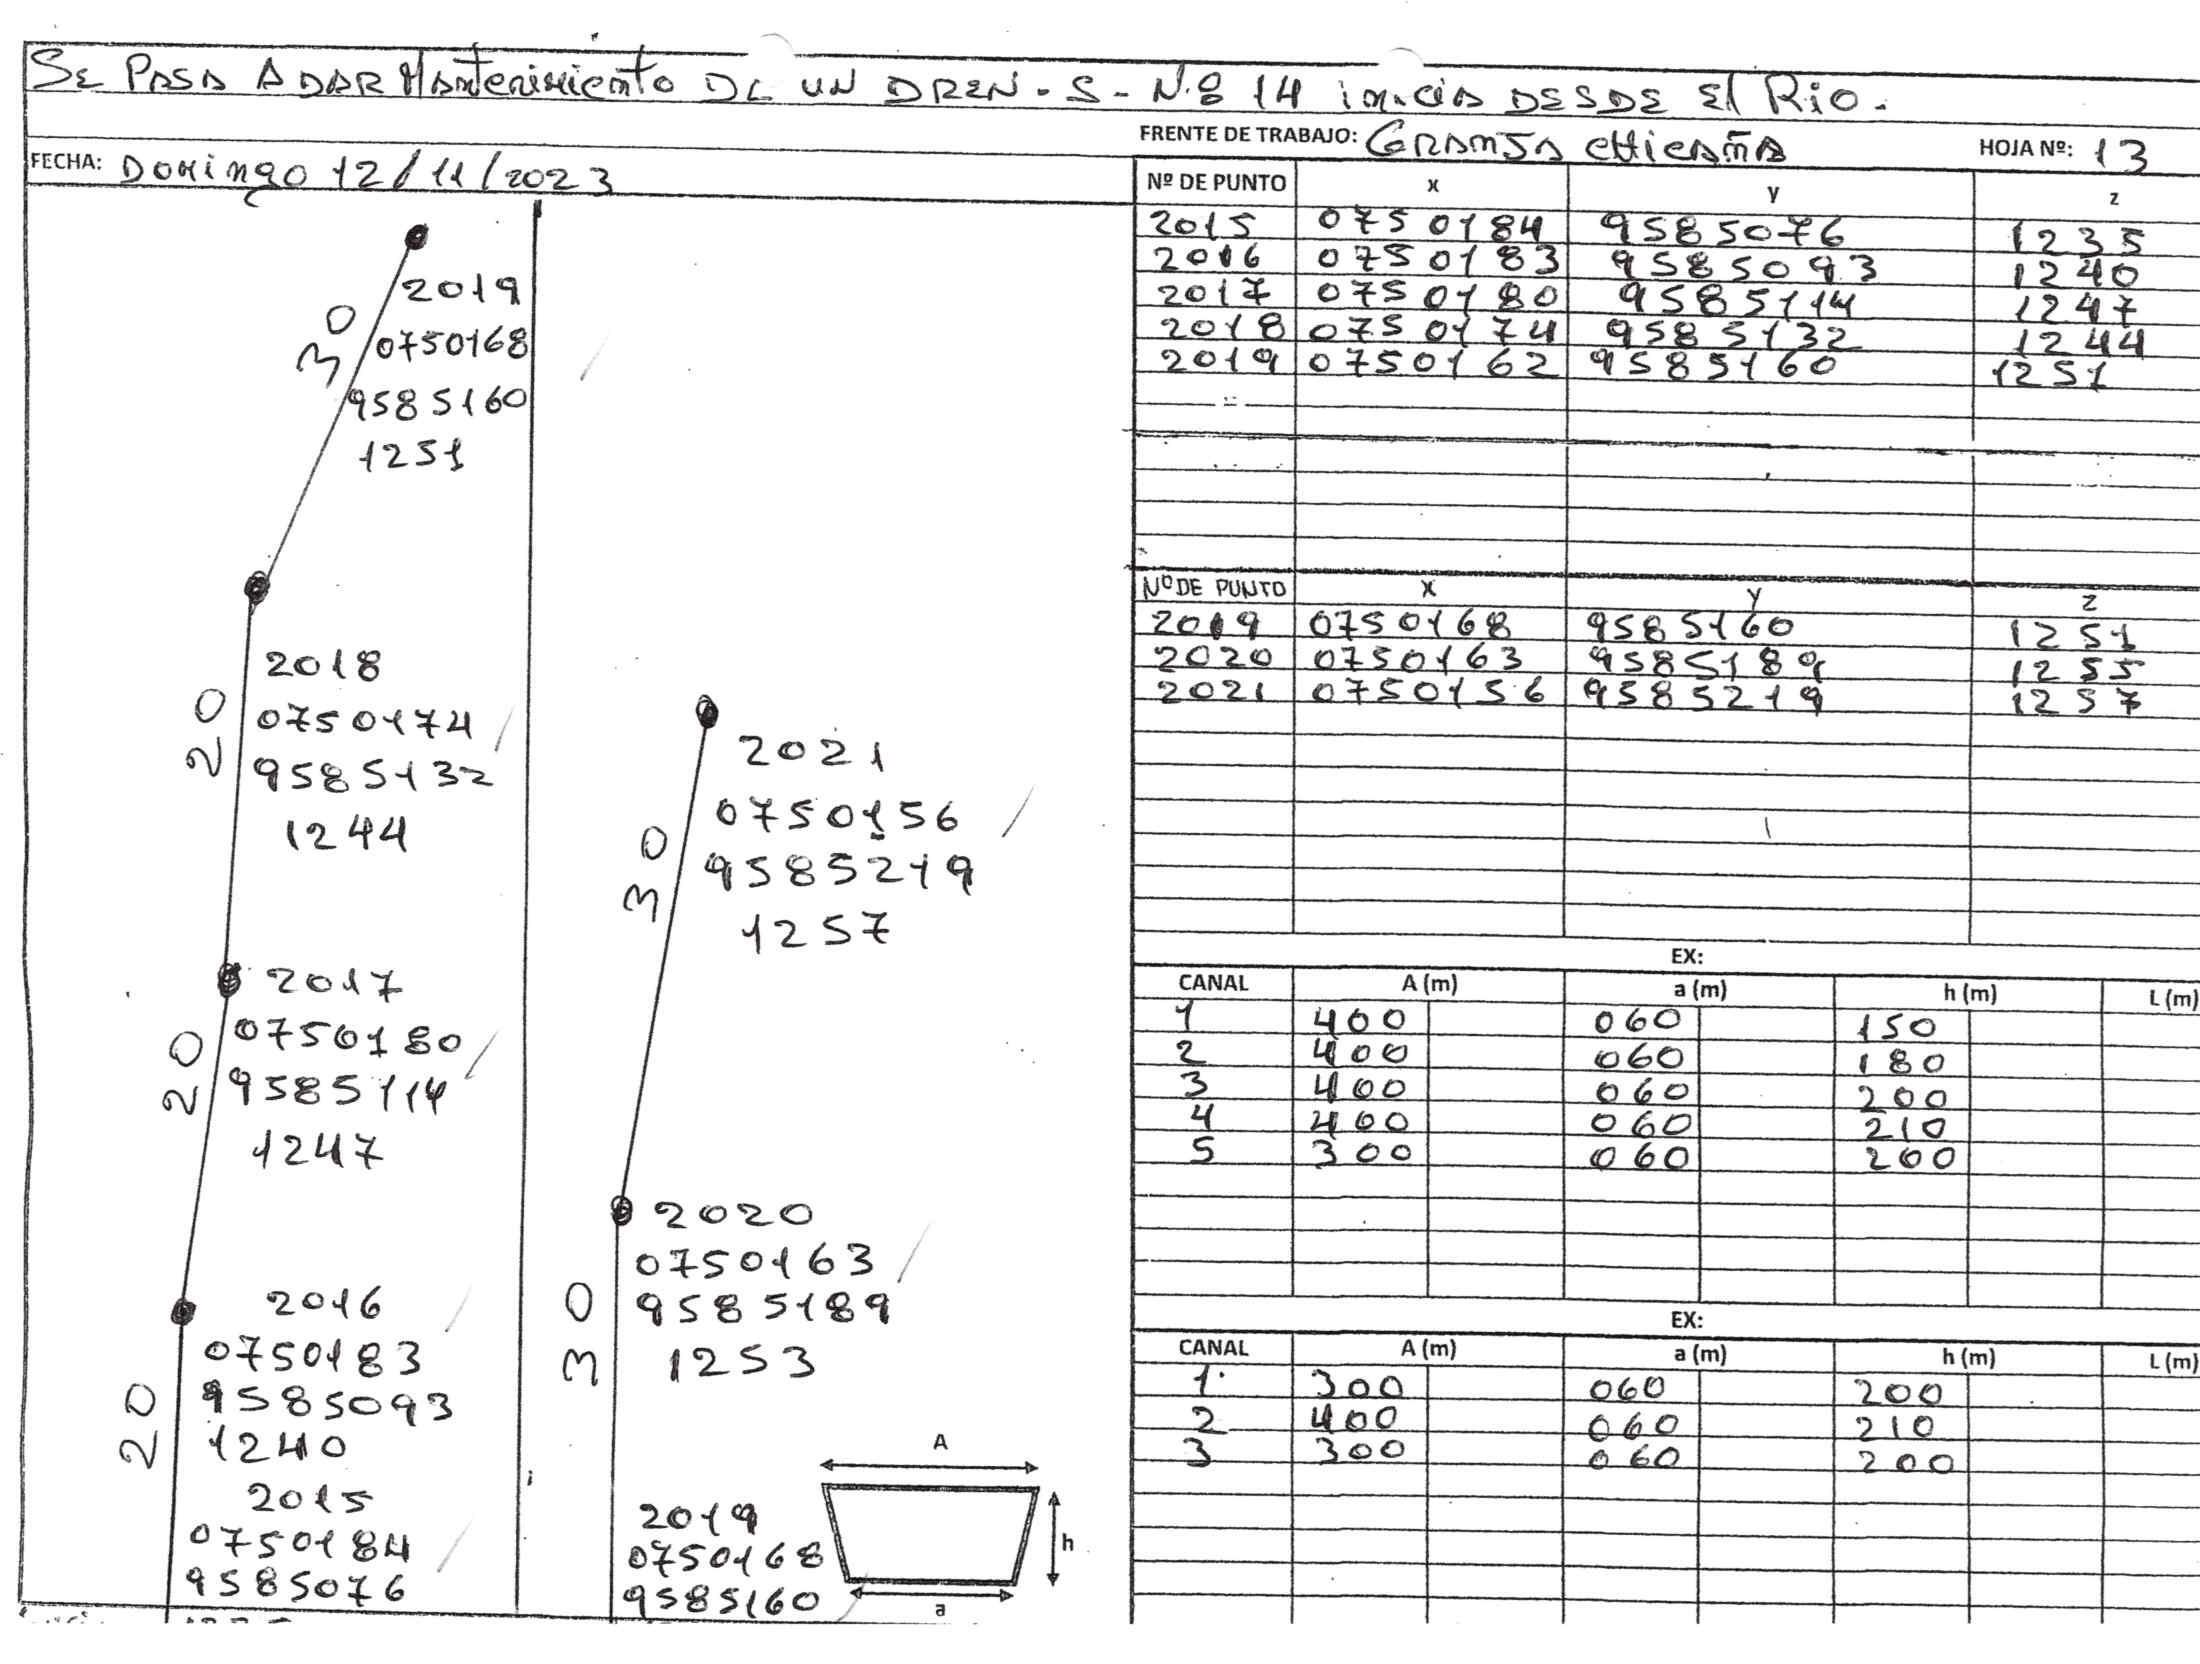 SE PASA A DAR Mantenimiento DE UN DREN - S - N.º 14 inicia DESDE El Rio.
FRENTE DE TRABAJO: GRANJA CHICAÑA HOJA Nº: 13
FECHA: DOMingo 12/11/2023
2019
0750168
9585160
1251
30
2018
0750174
9585132
1244
20
2017
0750180
9585114
1247
20
2016
0750183
9585093
1240
20
2015
0750184
9585076
2021
0750156
9585219
1257
30
2020
0750163
9585189
1253
30
2019
0750168
9585160
A
h
a
Nº DE PUNTO x y z
2015 0750184 9585076 1235
2016 0750183 9585093 1240
2017 0750180 9585114 1247
2018 0750174 9585132 1244
2019 0750162 9585160 1251
Nº DE PUNTO X Y Z
2019 0750168 9585160 1251
2020 0750163 9585189 1255
2021 0750156 9585219 1257
EX:
CANAL A (m) a (m) h (m) L (m)
1 400 060 150
2 400 060 180
3 400 060 200
4 400 060 210
5 300 060 200
EX:
CANAL A (m) a (m) h (m) L (m)
1. 300 060 200
2 400 060 210
3 300 060 200